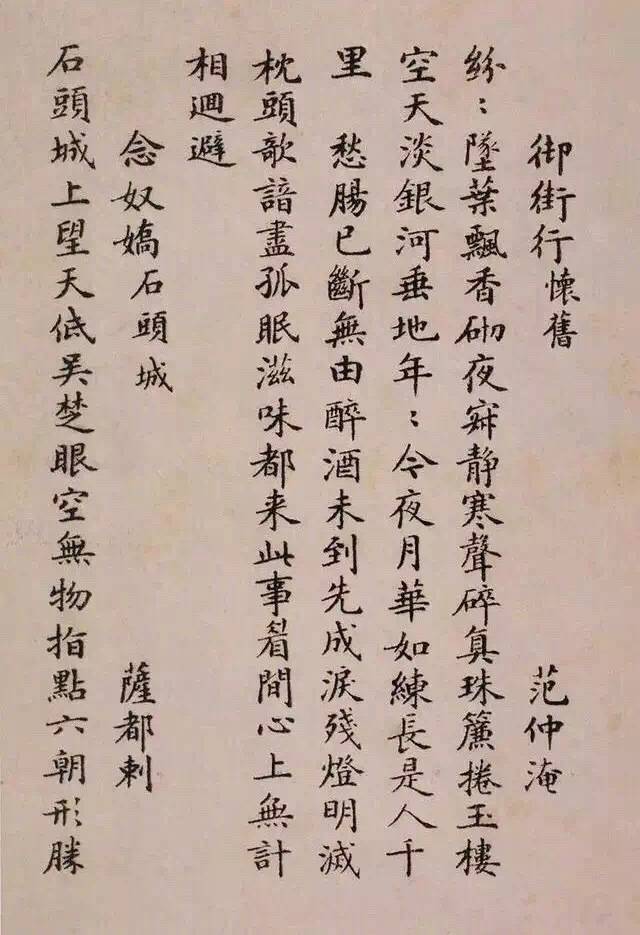 御街行懷舊 范仲淹
紛〻墜葉飄香砌夜寂静寒聲碎真珠簾捲玉樓
空天淡銀河垂地年〻今夜月華如練長是人千
里 愁腸已斷無由醉酒未到先成淚殘燈明滅
枕頭欹諳盡孤眠滋味都来此事眉間心上無計
相迴避
念奴嬌石頭城 薩都剌
石頭城上望天低吴楚眼空無物指點六朝形勝